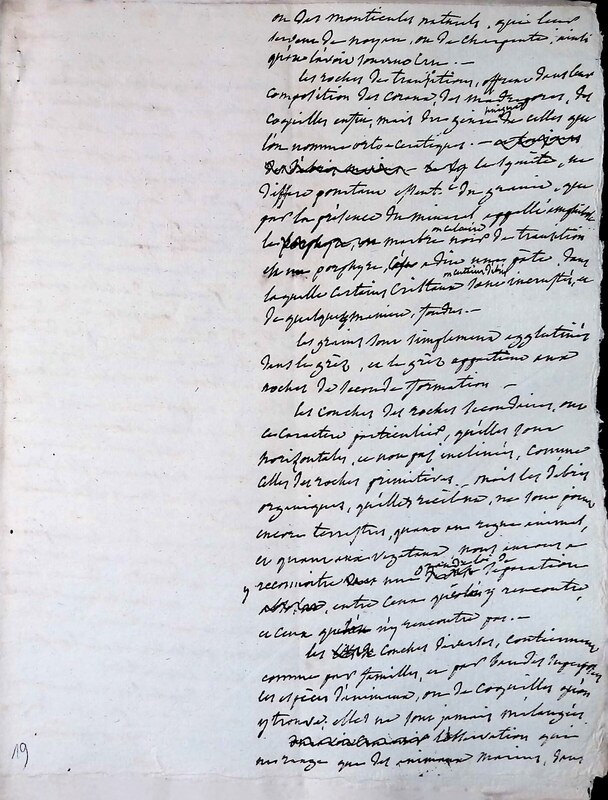 ou des monticules naturels, qui leur
servent de noyau, ou de charpente, ainsi
qu'on l'avoit souvent cru. —
les roches de transitions, offrent dans leur
composition des coraux, des madrepores, des
coquilles enfin, mais du genre de celles que
l'on nomme orto-ceratiques. —
le syénite, ne
differe pourtant essent. t du granite, que
par la présence du mineral, appellé amphibole
le marbre noir de transition
est porphyre, c'est a dire une pâte, dans
laquelle certains cristaux sont incrustés, et
de quelque maniere, fondus. —
les grains sont simplement agglutinés
dans le grès, et le grès appartient aux
roches de seconde formation —
les couches des roches secondaires, ont
ce caractère particulier, qu'elles sont
horizontales, et non pas inclinées, comme
celles des roches primitives. — mais les debris
organiques, qu'elles recelent, ne sont point
encore terrestres, quant au regne animal,
et quant aux vegetaux, nous aurons a
reconnoitre une separation
entre ceux qu'on y rencontre,
et ceux qu'on n'y rencontre pas. —
les couches diverses, contiennent
comme par familles, et par bandes
les espèces d'animaux, ou de coquilles qu'on
y trouve. elles ne sont jamais mélangées
l'observation que
que des animaux marins, dans
19